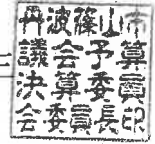 丹波篠山市
議会予算
決算委員
会委員長印